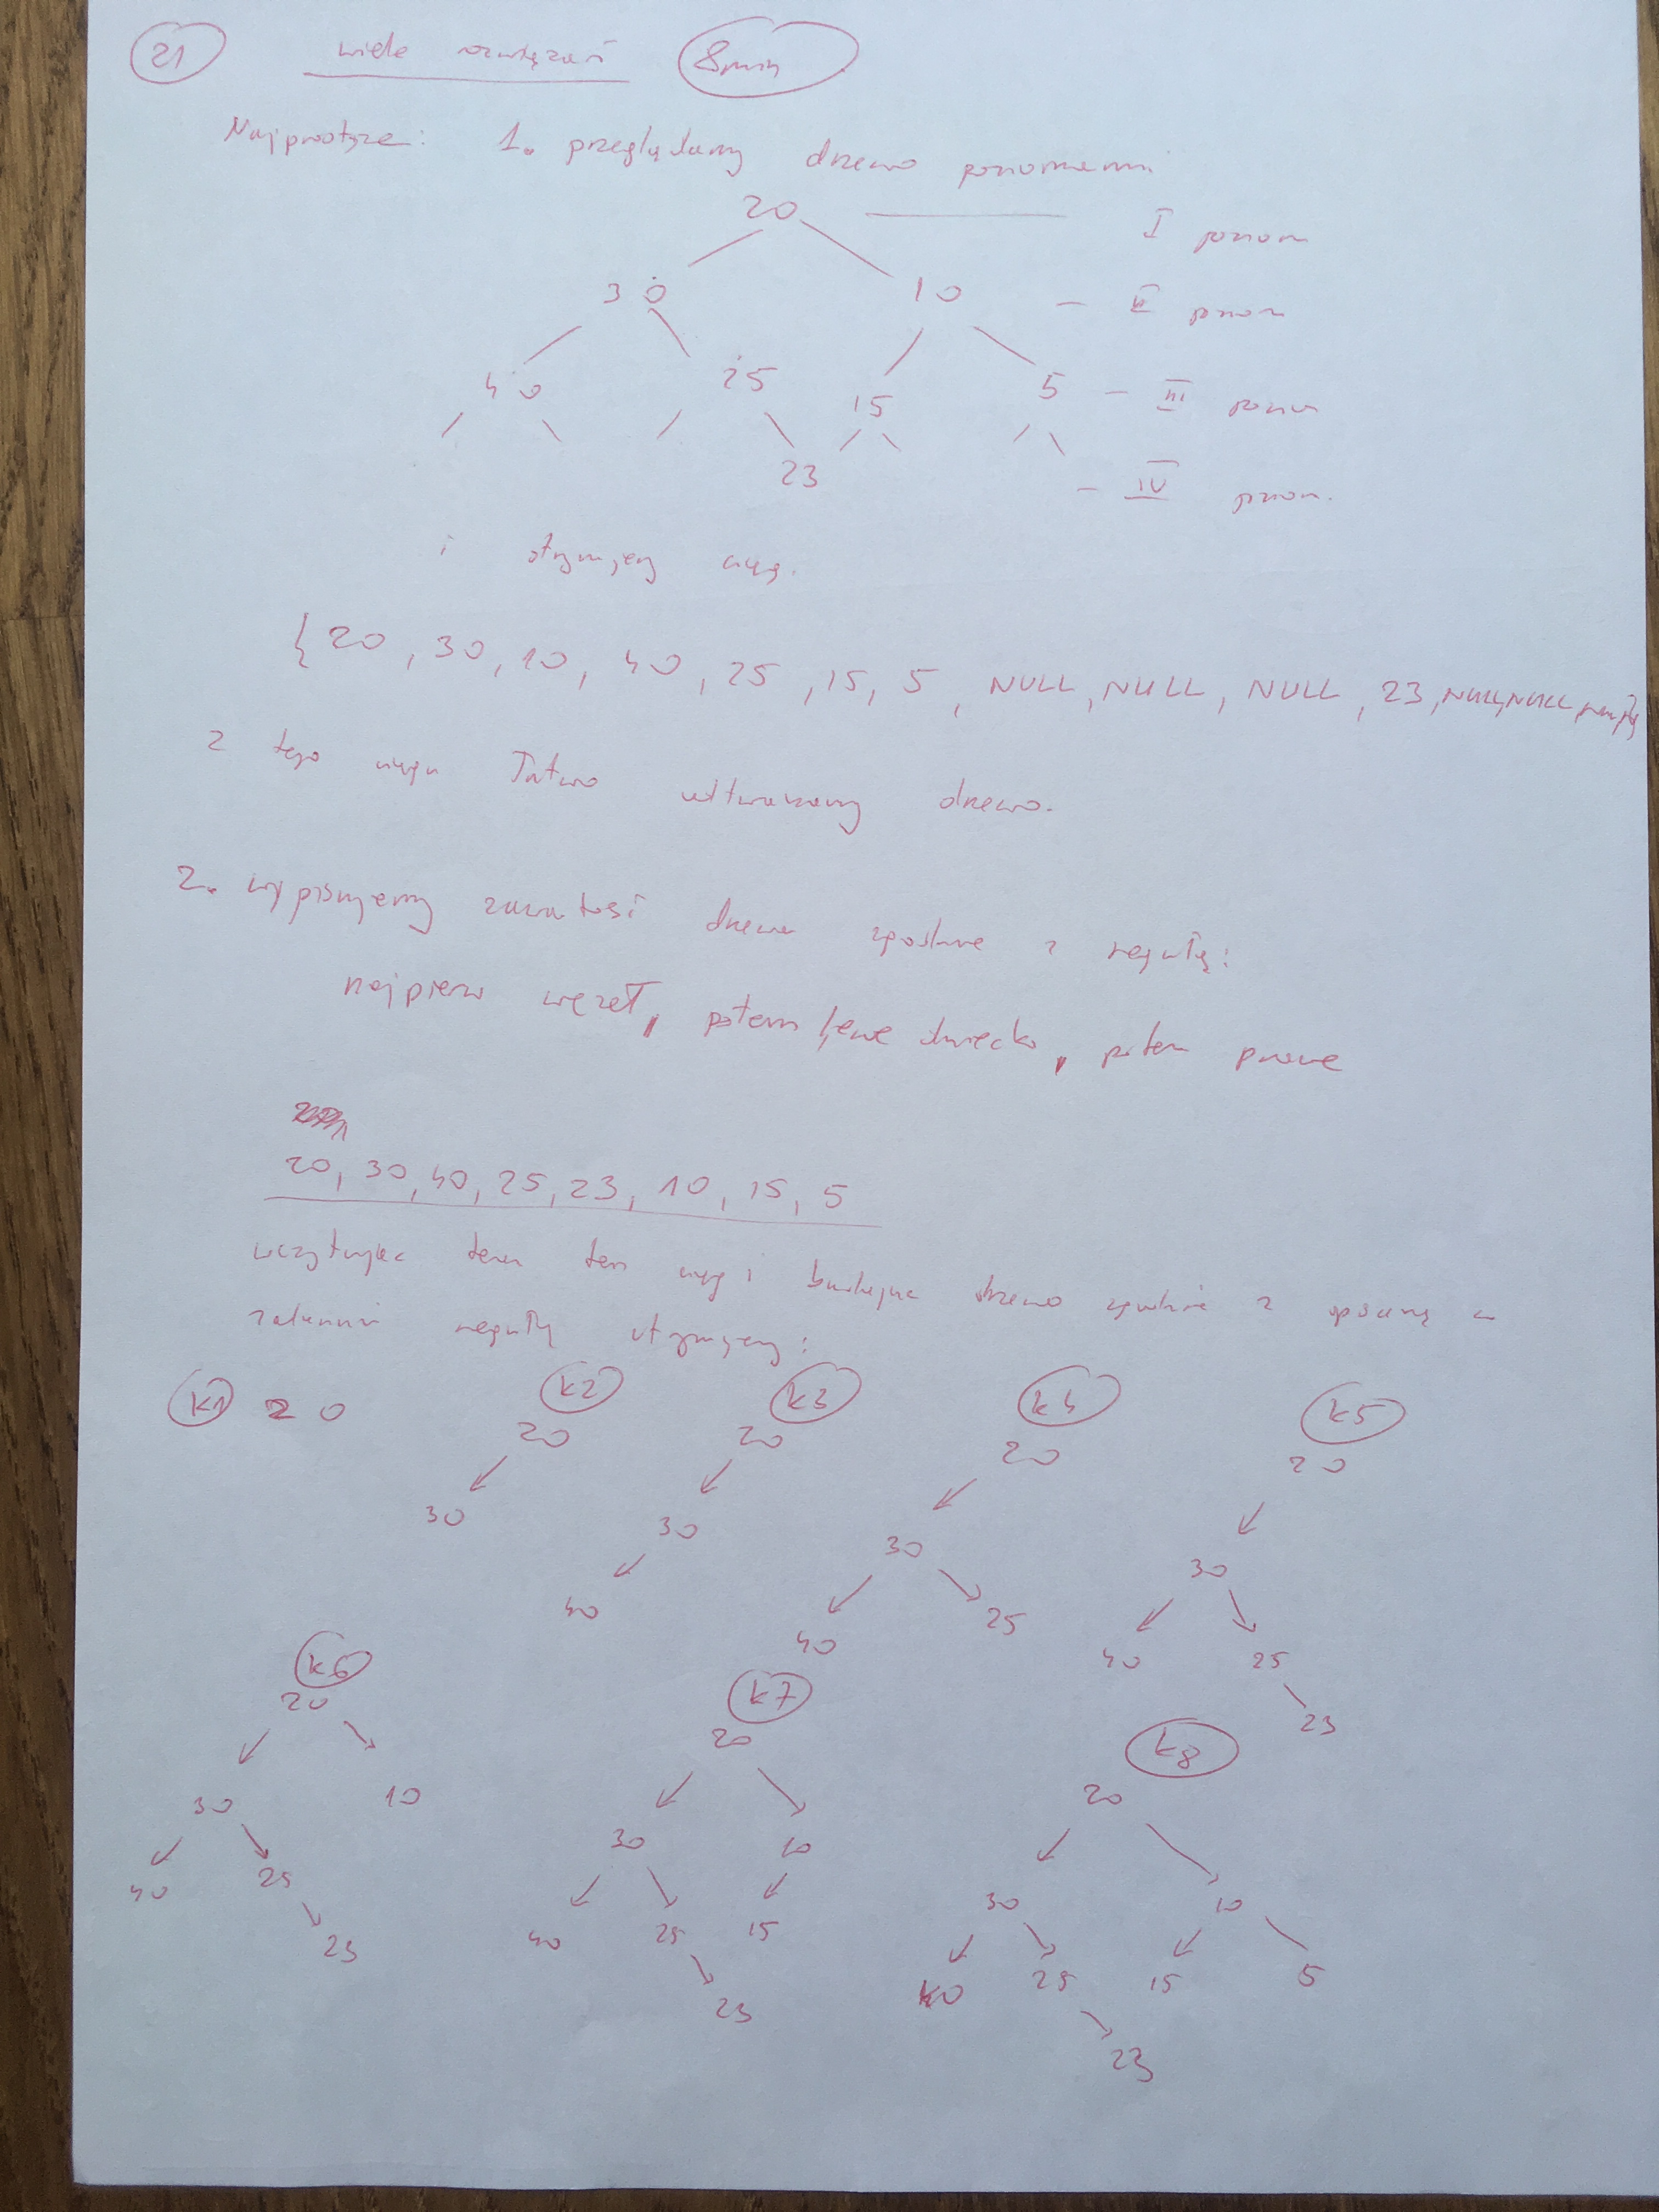 21 wiele rozwiązań 8min
Najprostsze: 1. przeglądamy drzewo poziomami
20 I poziom
30 10 - II poziom
40 25 15 5 - III poziom
23 - IV poziom.
i otrzymujemy ciąg.
{20, 30, 10, 40, 25, 15, 5, NULL, NULL, NULL, 23, NULL, NULL,
z tego ciągu łatwo odtwarzamy drzewo.
2. wypisujemy zawartość drzewa zgodnie z regułą:
najpierw węzeł, potem lewe dziecko, potem prawe
20, 30, 40, 25, 23, 10, 15, 5
wczytując teraz ten ciąg i budując drzewo zgodnie z opisaną w
zadaniu regułą otrzymujemy:
K1 20
K2
20
30
K3
20
30
40
K4
20
30
40 25
K5
20
30
40 25
23
K6
20
30 10
40 25
23
K7
20
30 10
40 25 15
23
K8
20
30 10
40 25 15 5
23